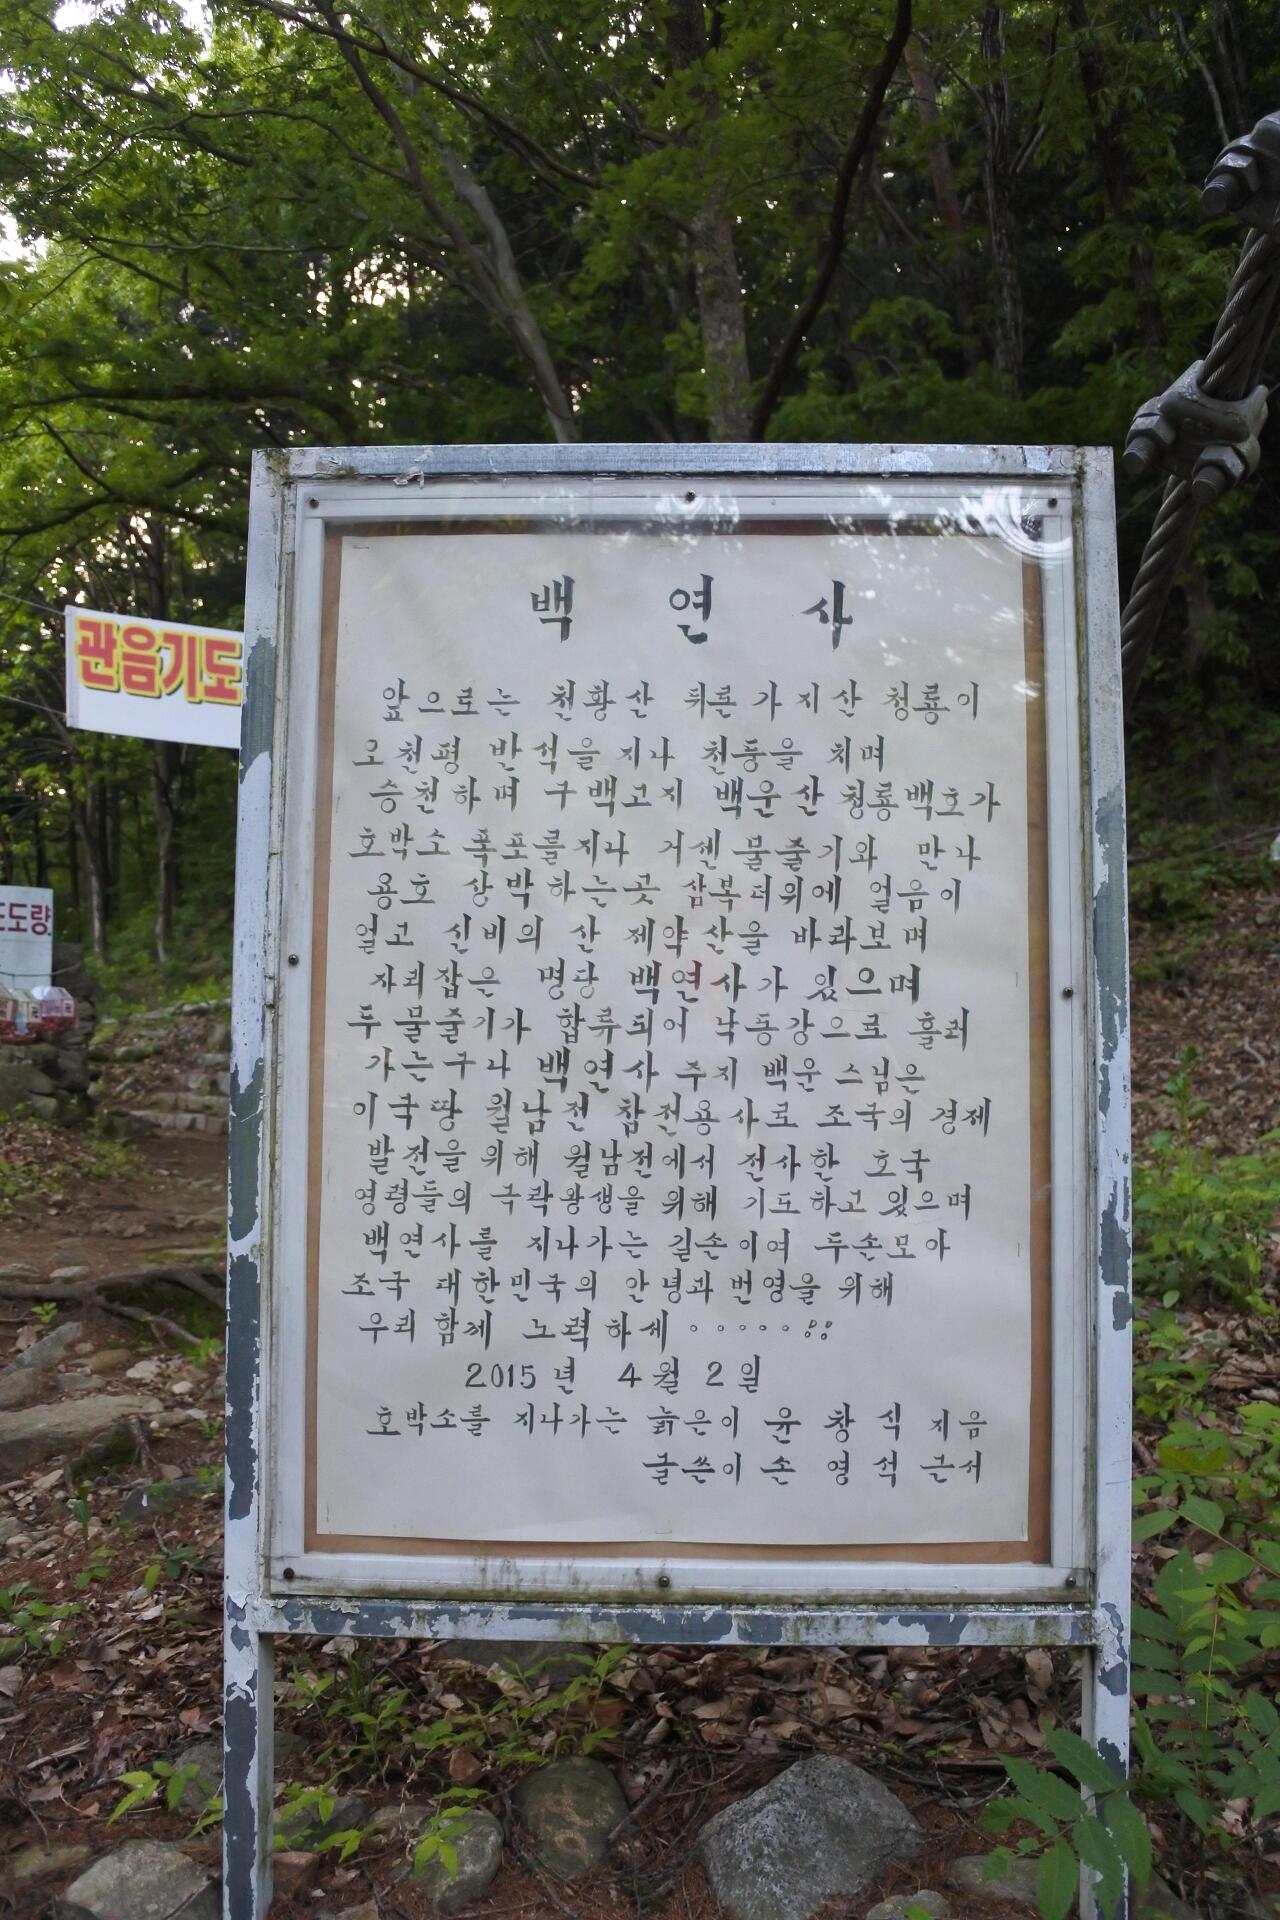 백 연 사
앞으로는 천황산 뒤론 가지산 청룡이
오천평 반석을 지나 천둥을 치며
승천하며 구백고지 백운산 청룡백호가
호박소 폭포를 지나 거센 물줄기와 만나
용호 상박하는곳 삼복더위에 얼음이
얼고 신비의 산 제약산을 바라보며
자리잡은 명당 백연사가 있으며
두 물줄기가 합류되어 낙동강으로 흘러
가는구나 백연사 주지 백운 스님은
이국땅 월남전 참전용사로 조국의 경제
발전을 위해 월남전에서 전사한 호국
영령들의 극락왕생을 위해 기도하고 있으며
백연사를 지나가는 길손이여 두손모아
조국 대한민국의 안녕과 번영을 위해
우리 함께 노력하세 ·····!!
2015년 4월 2일
호박소를 지나가는 늙은이 윤 창 식 지음
글쓴이 손 영 석 근서
관음기도
도량